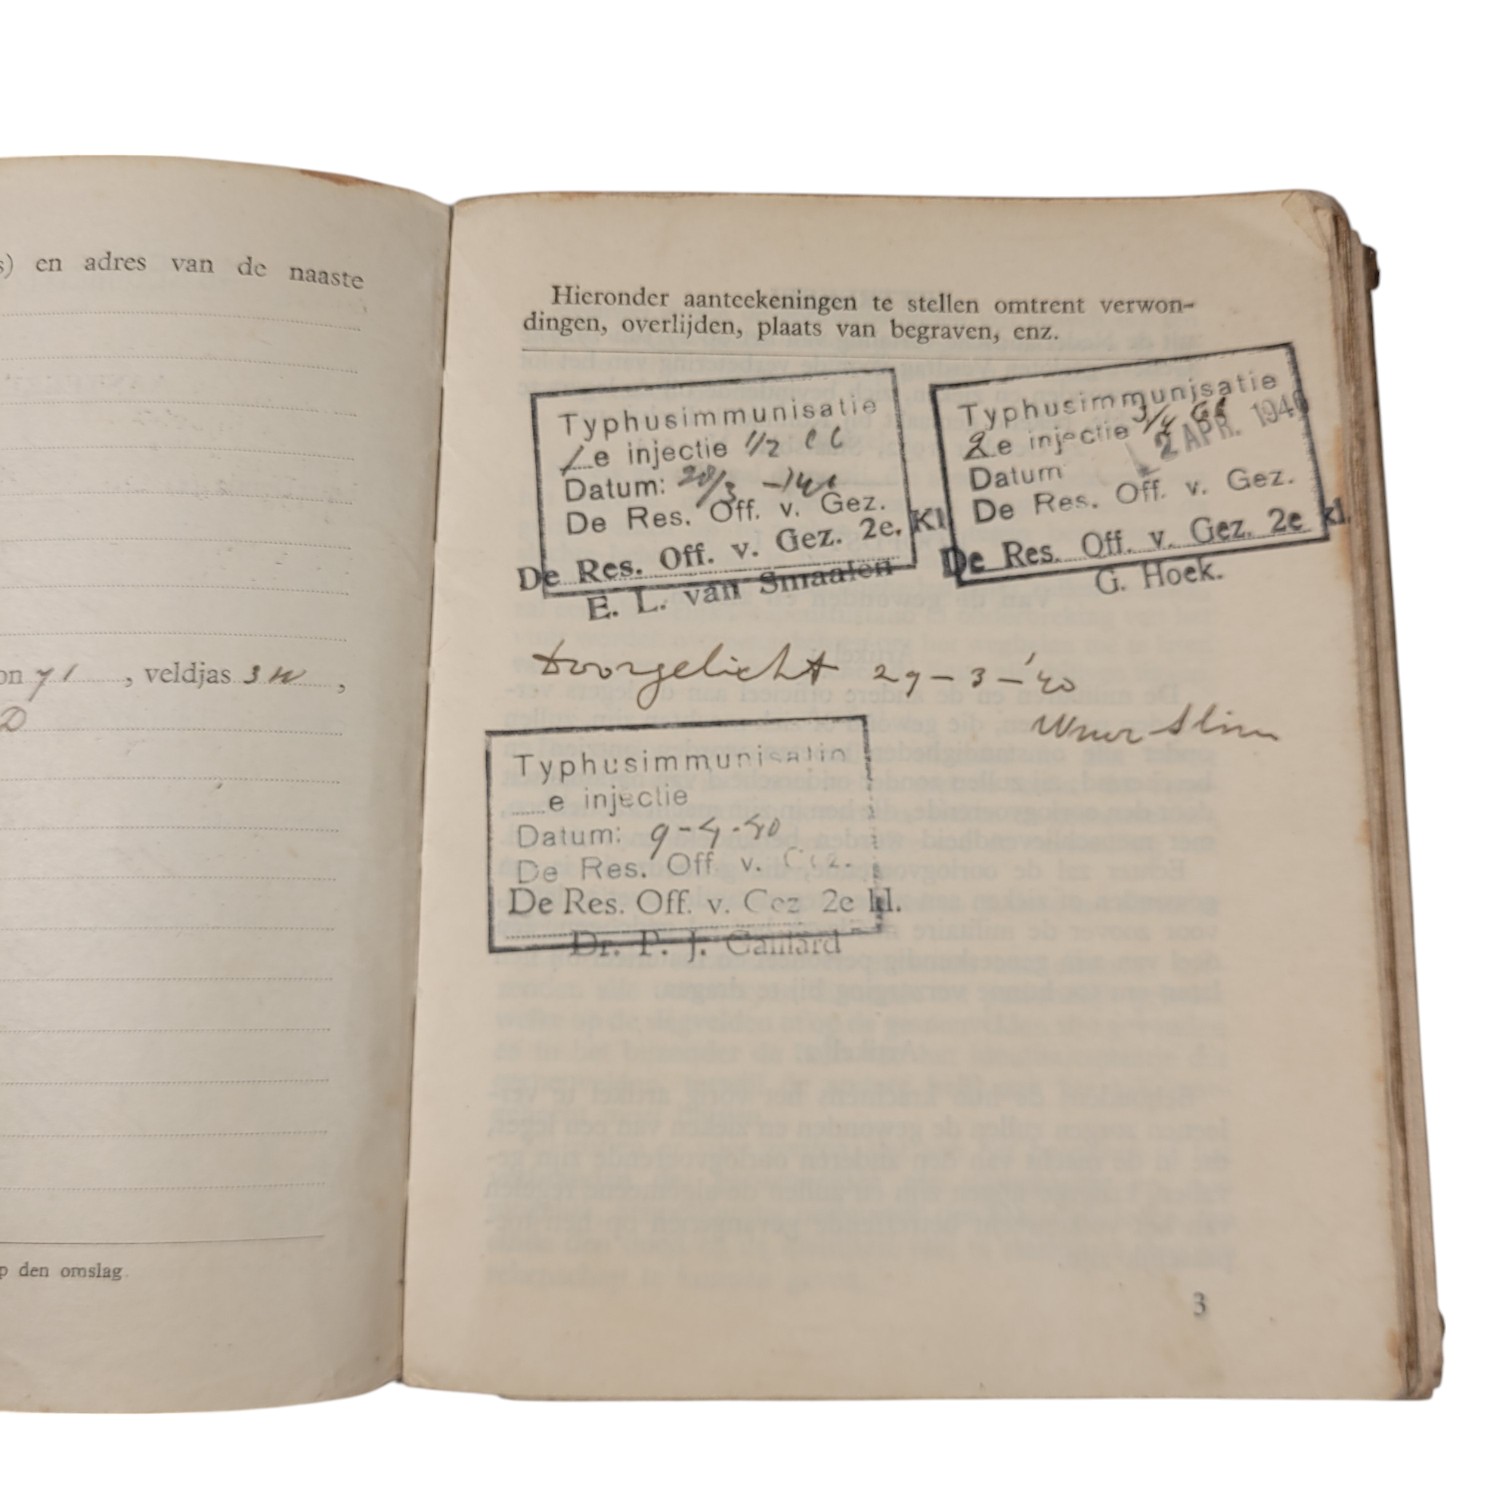 s) en adres van de naaste
on 71 , veldjas 3 W ,
D
p den omslag.
Hieronder aanteekeningen te stellen omtrent verwon-
dingen, overlijden, plaats van begraven, enz.
Typhusimmunisatie
1e injectie 1/2 CC
Datum: 20/3 -
De Res. Off. v. Gez.
De Res. Off. v. Gez. 2e. Kl
E. L. van Smaalen
Typhusimmunisatie
2e injectie 3/4 CC
Datum 2 APR. 1940
De Res. Off. v. Gez.
De Res. Off. v. Gez. 2e kl.
G. Hoek.
Doorgelicht 29-3-'40
Typhusimmunisatie
e injectie
Datum: 9-4-40
De Res. Off. v. Gez.
De Res. Off. v. Gez 2e kl.
Dr. P. J. Gaillard
3